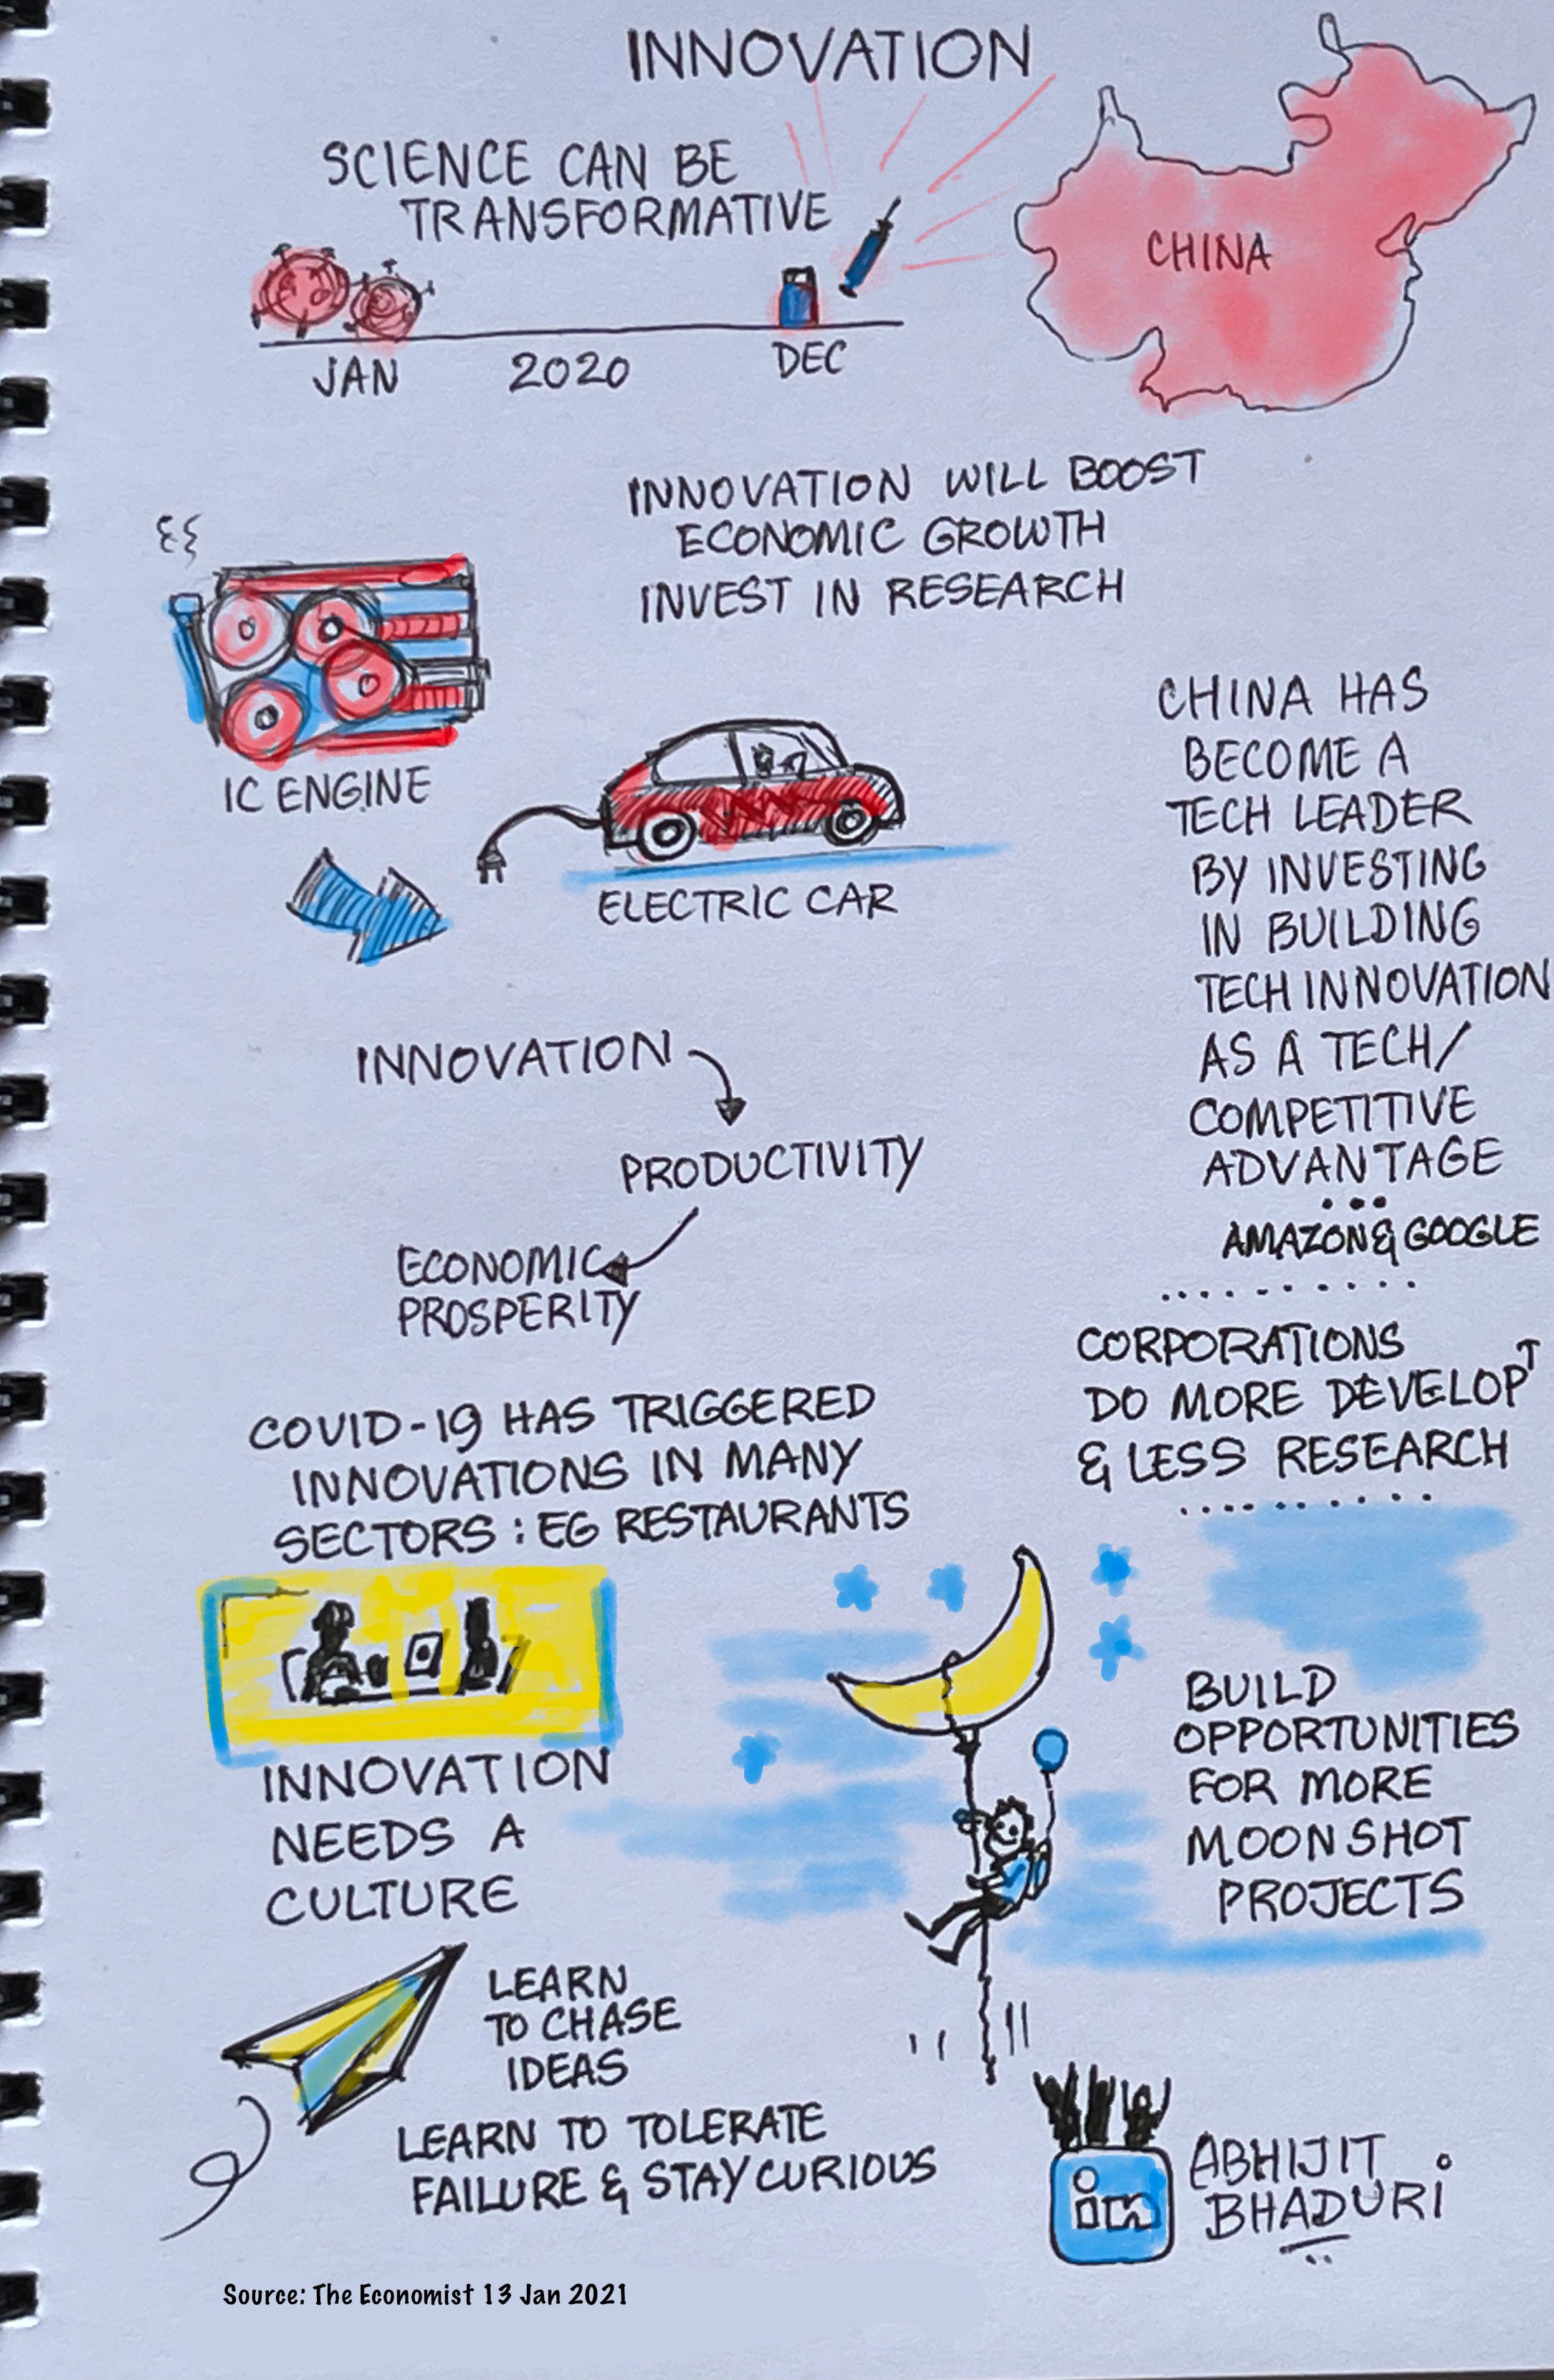 INNOVATION
SCIENCE CAN BE
TRANSFORMATIVE
JAN
2020
DEC
CHINA
INNOVATION WILL BOOST
ECONOMIC GROWTH
INVEST IN RESEARCH
IC ENGINE
ELECTRIC CAR
CHINA HAS
BECOME A
TECH LEADER
BY INVESTING
IN BUILDING
TECH INNOVATION
AS A TECH/
COMPETITIVE
ADVANTAGE
...
AMAZON & GOOGLE
INNOVATION
PRODUCTIVITY
ECONOMIC
PROSPERITY
CORPORATIONS
DO MORE DEVELOPT
& LESS RESEARCH
COVID-19 HAS TRIGGERED
INNOVATIONS IN MANY
SECTORS : EG RESTAURANTS
INNOVATION
NEEDS A
CULTURE
BUILD
OPPORTUNITIES
FOR MORE
MOONSHOT
PROJECTS
LEARN
TO CHASE
IDEAS
LEARN TO TOLERATE
FAILURE & STAY CURIOUS
in
ABHIJIT
BHADURi
Source: The Economist 13 Jan 2021